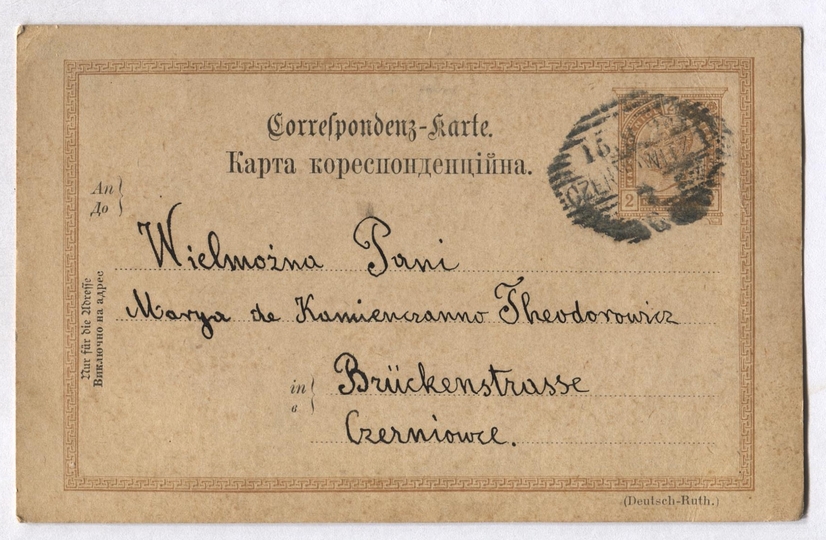 Correspondenz-Karte.
Карта кореспонденційна.
An
До
Wielmożna Pani
Marya de Kamienczanno Theodorowicz
in
в
Brückenstrasse
Czerniowce.
Nur für die Adresse
Виключно на адрес
15
2
(Deutsch-Ruth.)